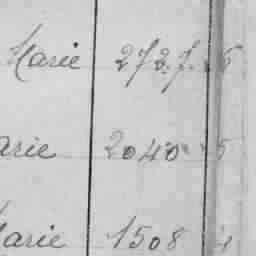 Marie 272.7. 5
arie 2040 5
Marie 1508